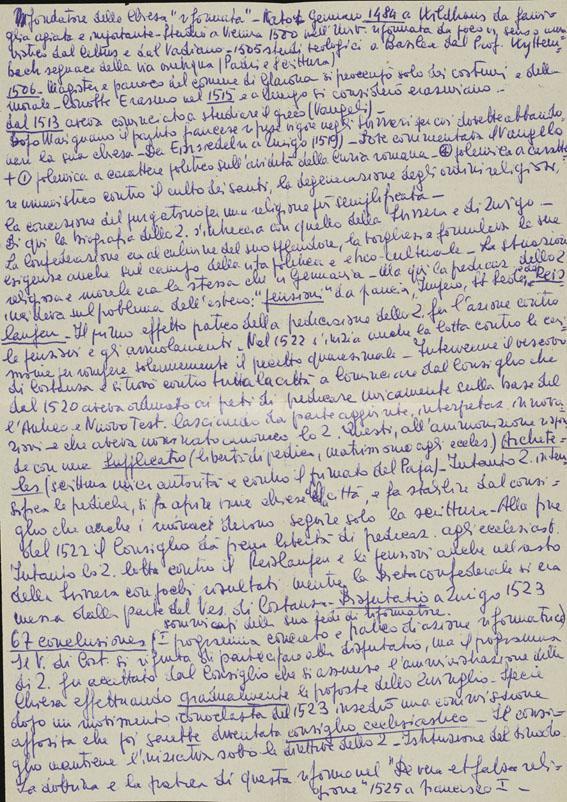 fondatore della Chiesa "riformata" - Nato 1 Gennaio 1484 a Wildhaus da fami-
glia agiata e importante - Studiò a Vienna 1500 nell'Univ. riformata da poco in senso uma-
nistico dal Celtes e dal Vadiano - 1505 studi teologici a Basilea dal Prof. Wyttem-
bach seguace della via antiqua (Padri e Scrittura)
1506. Magister e parroco del comune di Glarona si preoccupò solo dei costumi e della
morale - Conobbe Erasmo nel 1515 e a lungo si considerò erasmiano -
dal 1513 aveva cominciato a studiare il greco (Vangeli) -
Dopo Marignano il partito francese riprese vigore negli svizzeri per cui dovette abbando-
nare la sua chiesa - Da Einsiedeln a Zurigo (1519) - Dove commentava il Vangelo
+ ① polemica a carattere politico sull'avidità della curia romana - ② polemica a caratte-
re umanistico contro il culto dei santi, la degenerazione degli ordini religiosi,
la concezione del purgatorio per una religione più semplificata -
Di qui la biografia dello Z. s'intreccia con quella della Svizzera e di Zurigo -
La Confederazione era al culmine del suo splendore, la borghesia formulava le sue
esigenze anche sul campo della vita politica e etico-culturale - La situazione
religiosa e morale era la stessa che in Germania - Ma qui la predicaz. dello Z
incideva sul problema dell'estero: "pensioni" da Francia, Impero, St. Sede, Reis
laufen - Il primo effetto pratico della predicazione dello Z. fu l'azione contro
le pensioni e gli arruolamenti. Nel 1522 s'inizia anche la lotta contro le ceri-
monie per rompere solennemente il precetto quaresimale - Intervenne il vescovo
di Costanza e si trovò contro tutta la città a cominciare dal Consiglio che
dal 1520 aveva ordinato ai preti di predicare unicamente sulla base del
l'Antico e Nuovo Test. lasciando da parte aggiunte, interpretaz. innova-
zioni - e che aveva nominato canonico lo Z. Questi, all'ammonizione rispo-
se con una Supplicatio (libertà di predica, matrimonio agli eccles) Archete-
les (scrittura unica autorità e contro il primato del Papa) - Intanto Z. inten-
sifica le prediche, si fa aprire varie chiese della città, e fa stabilire dal consi-
glio che anche i monaci devono seguire solo la scrittura - Alla fine
del 1522 il Consiglio dà piena libertà di predicaz. agli ecclesiast.
Intanto lo Z. lotta contro il Reislaufen e le pensioni anche nel resto
della Svizzera con pochi risultati mentre la Dieta confederale si era
messa dalla parte del Ves. di Costanza. Disputatio a Zurigo 1523
capisaldi della sua fede di riformatore.
67 conclusiones (I programma concreto e pratico di azione riformatrice)
Il V. di Cost. si rifiuta di partecipare alla disputatio, ma il programma
di Z. fu accettato dal Consiglio che si assunse l'amministrazione della
Chiesa effettuando gradualmente le proposte dello Zwinglio. Specie
dopo un movimento iconoclasta del 1523 insediò una commissione
apposita che poi sarebbe diventata consiglio ecclesiastico - Il consi-
glio mantiene l'iniziativa sotto le direttive dello Z - Istituzione del sinodo.
La dottrina e la pratica di questa riforma nel "De vera et falsa reli-
gione" 1525 a Francesco I -